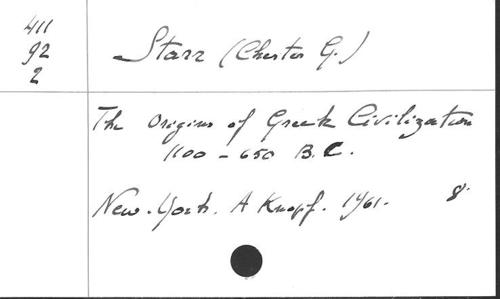 411
92
2
Starr (Chester G.)
The Origins of Greek Civilization
1100 - 650 B.C.
New-York. A Knopf. 1961. 8°